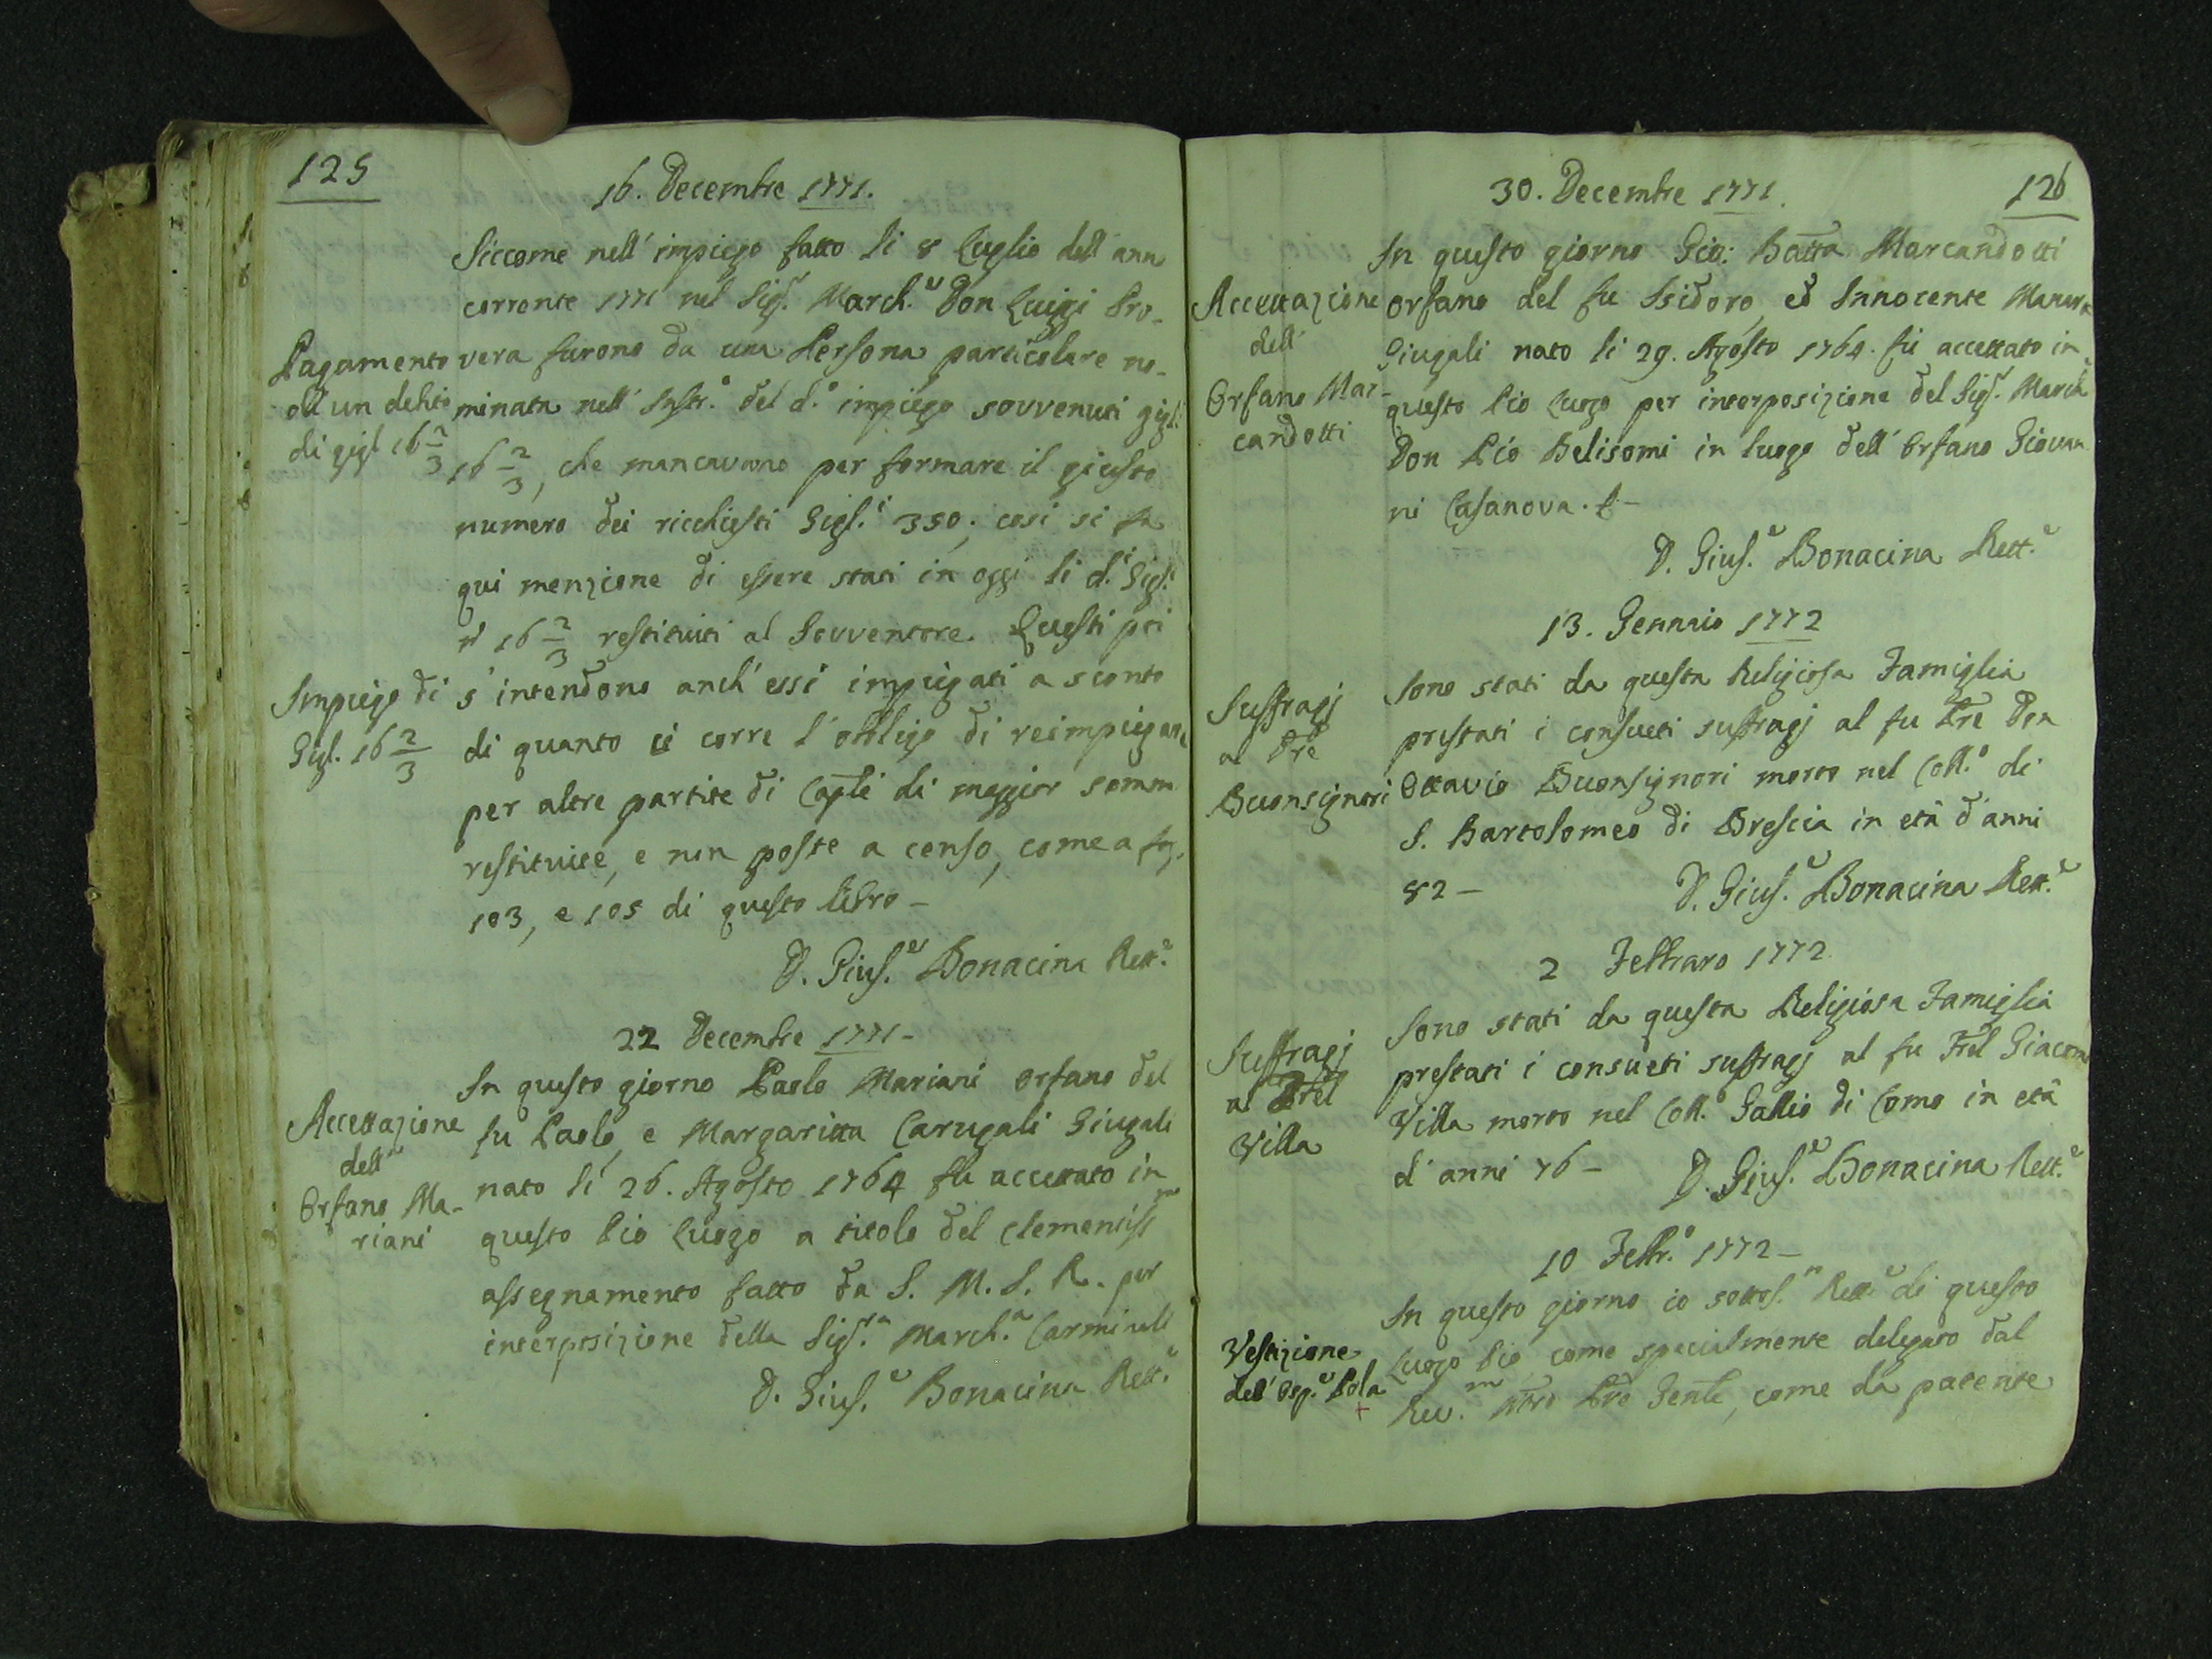 125
16. Decembre 1771.
Siccome nell' impiego fatto li 8 Luglio dell' ann
corrente 1771 nel Sig.r March.e Don Luigi Pro-
Pagamento
d' un debito
di gigl. 16 2/3
vera furono da una Persona particolare no-
minata nell' Instr.o del d.o impiego sovvenuti gigl.
16 2/3, che mancavano per formare il giusto
numero dei ricchiesti Gigl.i 350; così si fa
qui menzione di essere stati in oggi li d.i Gigl.i
n.o 16 2/3 restituiti al Sovventore. Questi poi
Impiego di
Gigl. 16 2/3
s' intendono anch' essi impiegati a sconto
di quanto ci corre l' obbligo di reimpiegare
per altre partite di Caple di maggior somm
restituite, e non poste a censo, come a fog.
103, e 105 di questo libro -
D. Gius.e Bonacina Rett.e
22 Decembre 1771 -
In questo giorno Paolo Mariani orfano del
Accettazione
dell'
Orfano Ma-
riani
fu Paolo, e Margaritta Carugali Giugali
nato li 26. Agosto 1764 fu accettato in
questo Pio Luogo a titolo del clementiss.mo
assegnamento fatto da S. M. I. R. per
interposizione della Sig.ra March.a
D. Gius.e Bonacina Rett.e
30. Decembre 1771.
126
In questo giorno Gio: Batta Marcandotti
Accettazione
dell'
Orfano Mar-
candotti
orfano del fu Isidoro, ed Innocente
Giugali nato li 29. Agosto 1764. fu accettato in
questo Pio Luogo per interposizione del Sig.r March.e
Don Pio Belisomi in luogo dell' Orfano Giovan
ni Casanova. -
D. Gius.e Bonacina Rett.e
13. Gennaio 1772
Suffragj
al Pre
Buonsignori
Sono stati da questa Religiosa Famiglia
prestati i consueti suffragj al fu Pre Don
Ottavio Buonsignori morto nel Coll.o di
S. Bartolomeo di Brescia in età d' anni
82 -
D. Gius.e Bonacina Rett.e
2 Febbraro 1772
Suffragj
al Frel
Villa
Sono stati da questa Religiosa Famiglia
prestati i consueti suffragj al fu Frel Giacomo
Villa morto nel Coll.o Gallio di Como in età
d' anni 76 -
D. Gius.e Bonacina Rett.e
10 Febbr.o 1772 -
In questo giorno io sottos.o Rett.e di questo
Vestizione
dell' Osp.e Pola
+
Luogo Pio, come specialmente delegato dal
Rev.mo Ntro Pre Genle, come da patente